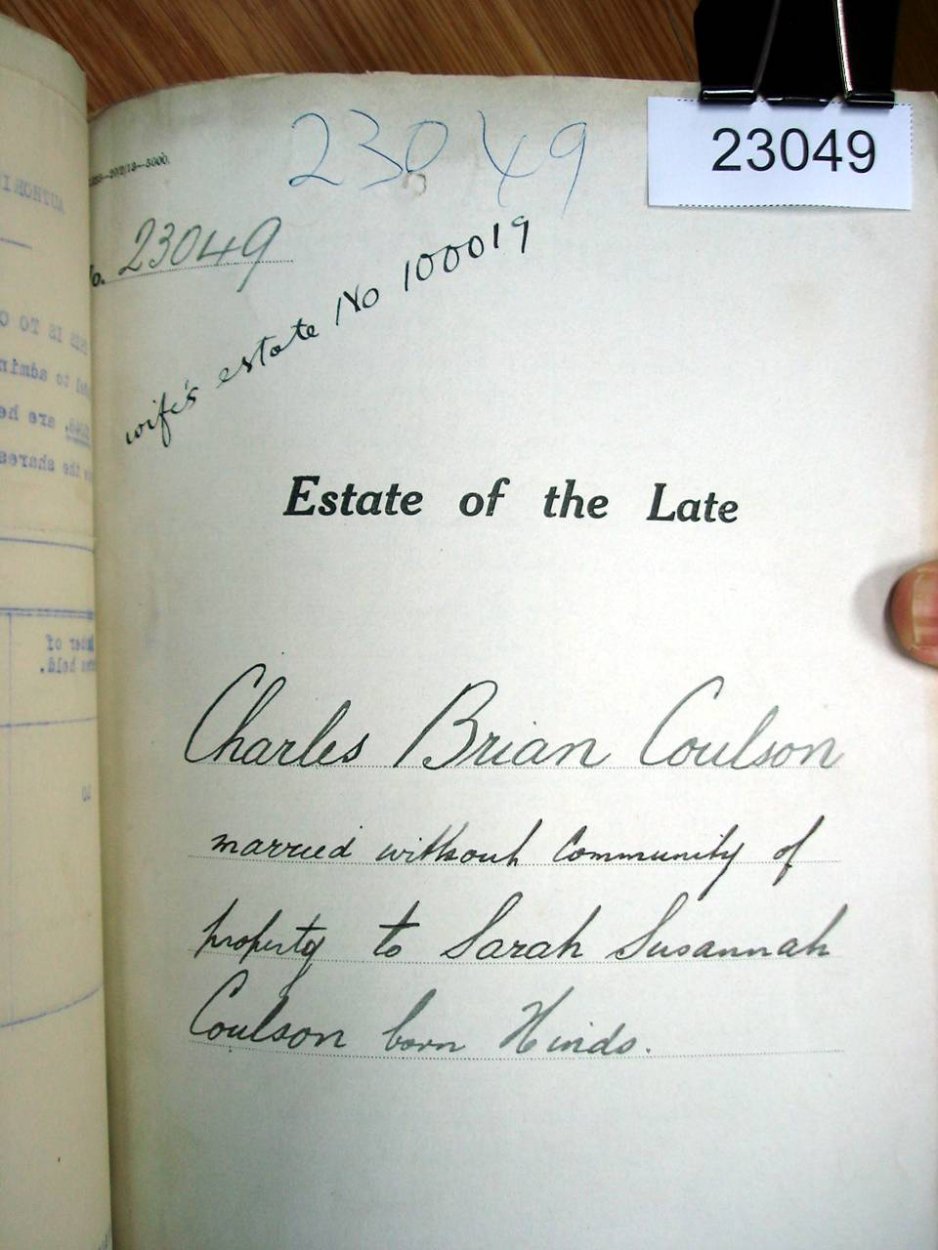 23049
23049
No. 23049
wife's estate No 100019
Estate of the Late
Charles Brian Coulson
married without Community of
property to Sarah Susannah
Coulson born Hinds.